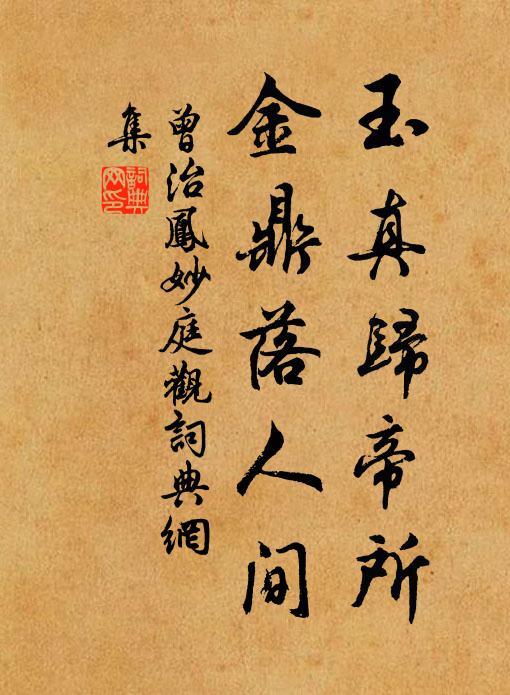 玉真歸帝所
金鼎落人间
曾治鳳妙庭觀詞典網
集
詞典
网印